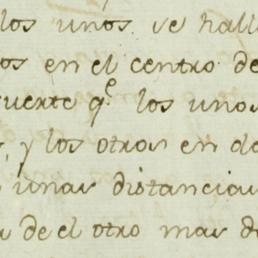 los unos se hall
os en el centro de
suerte q.e los unos
s, y los otros en de
unas distancias
a de el otro mas d